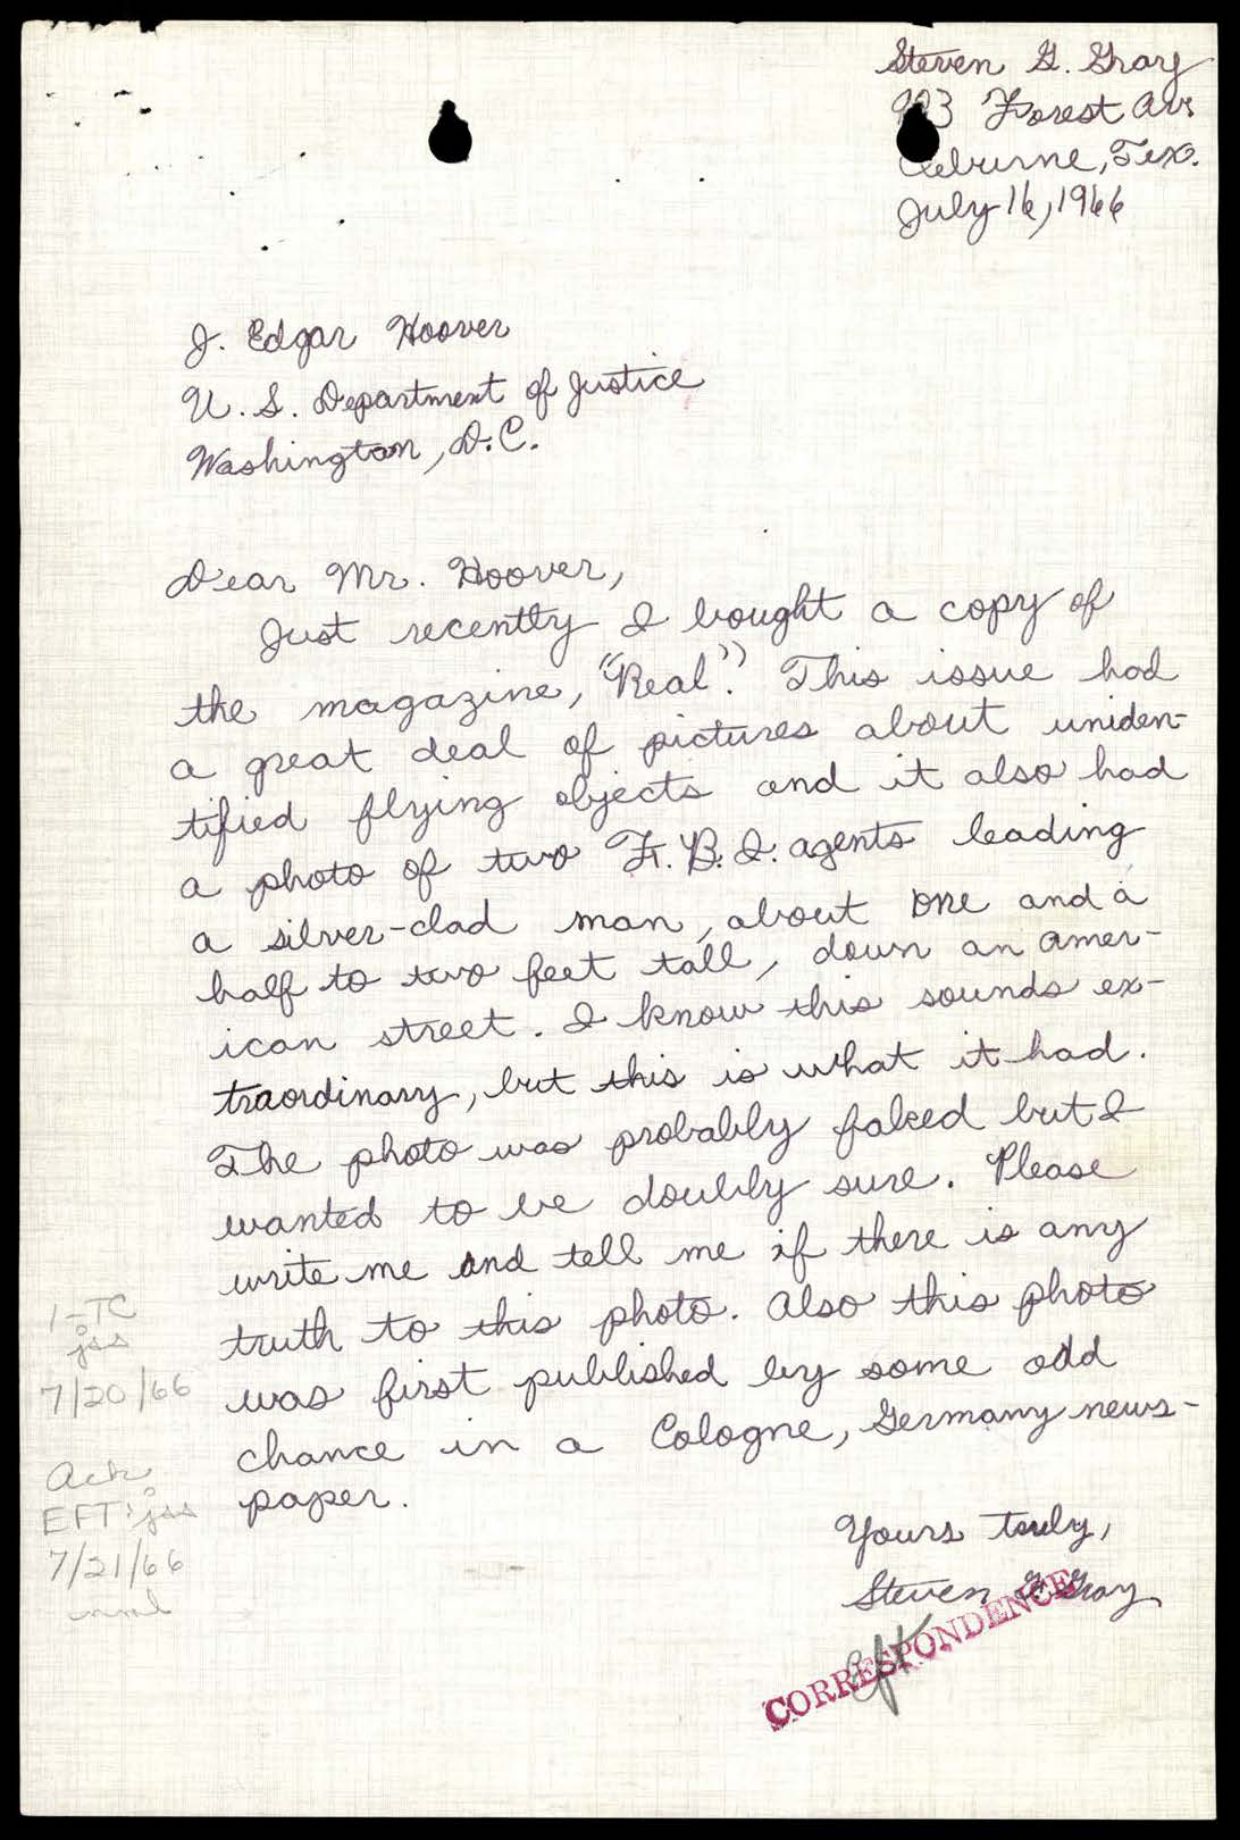 Steven G. Gray
3 Forest Ave
Cleburne, Tex.
July 16, 1966
J. Edgar Hoover
U. S. Department of Justice
Washington, D.C.
Dear Mr. Hoover,
Just recently I bought a copy of
the magazine, "Real". This issue had
a great deal of pictures about uniden-
tified flying objects and it also had
a photo of two F.B.I. agents leading
a silver-clad man, about one and a
half to two feet tall, down an Amer-
ican street. I know this sounds ex-
traordinary, but this is what it had.
The photo was probably faked but I
wanted to be doubly sure. Please
write me and tell me if there is any
truth to this photo. Also this photo
was first published by some odd
chance in a Cologne, Germany news-
paper.
Yours truly,
Steven G. Gray
CORRESPONDENCE
eft
1-TC
jss
7/20/66
Ack
EFT:jss
7/21/66